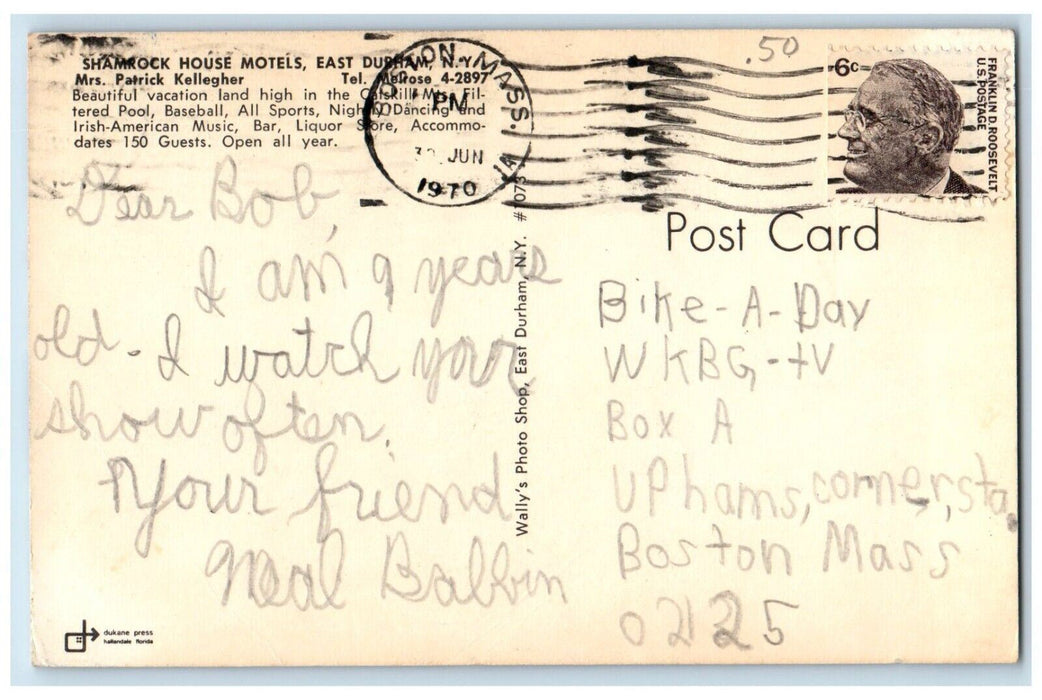 SHAMROCK HOUSE MOTELS, EAST DURHAM, N.Y.
Mrs. Patrick Kellegher Tel. Melrose 4-2897
Beautiful vacation land high in the Catskill Mts. Fil-
tered Pool, Baseball, All Sports, Nightly Dancing and
Irish-American Music, Bar, Liquor Store, Accommo-
dates 150 Guests. Open all year.
BOSTON, MASS.
PM
30 JUN
1970
.50
6c
FRANKLIN D. ROOSEVELT
U.S. POSTAGE
Post Card
Dear Bob,
I am 9 years
old. I watch your
show often.
Your friend
Neal Balbin
Wally's Photo Shop, East Durham, N.Y.
Bike-A-Day
WKBG-tV
Box A
UPhams, corner, sta.
Boston Mass
02125
dukane press
hallandale florida